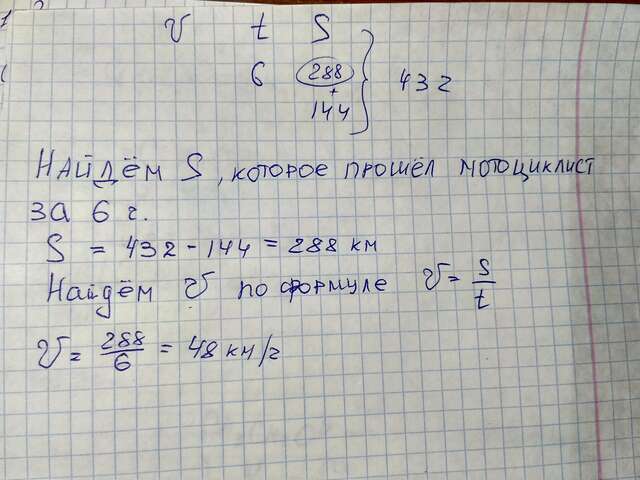 v t S
6 288
+
144
432
Найдём S, которое прошёл мотоциклист
за 6 ч.
S = 432 - 144 = 288 км
Найдём v по формуле v = S/t
v = 288/6 = 48 км/ч